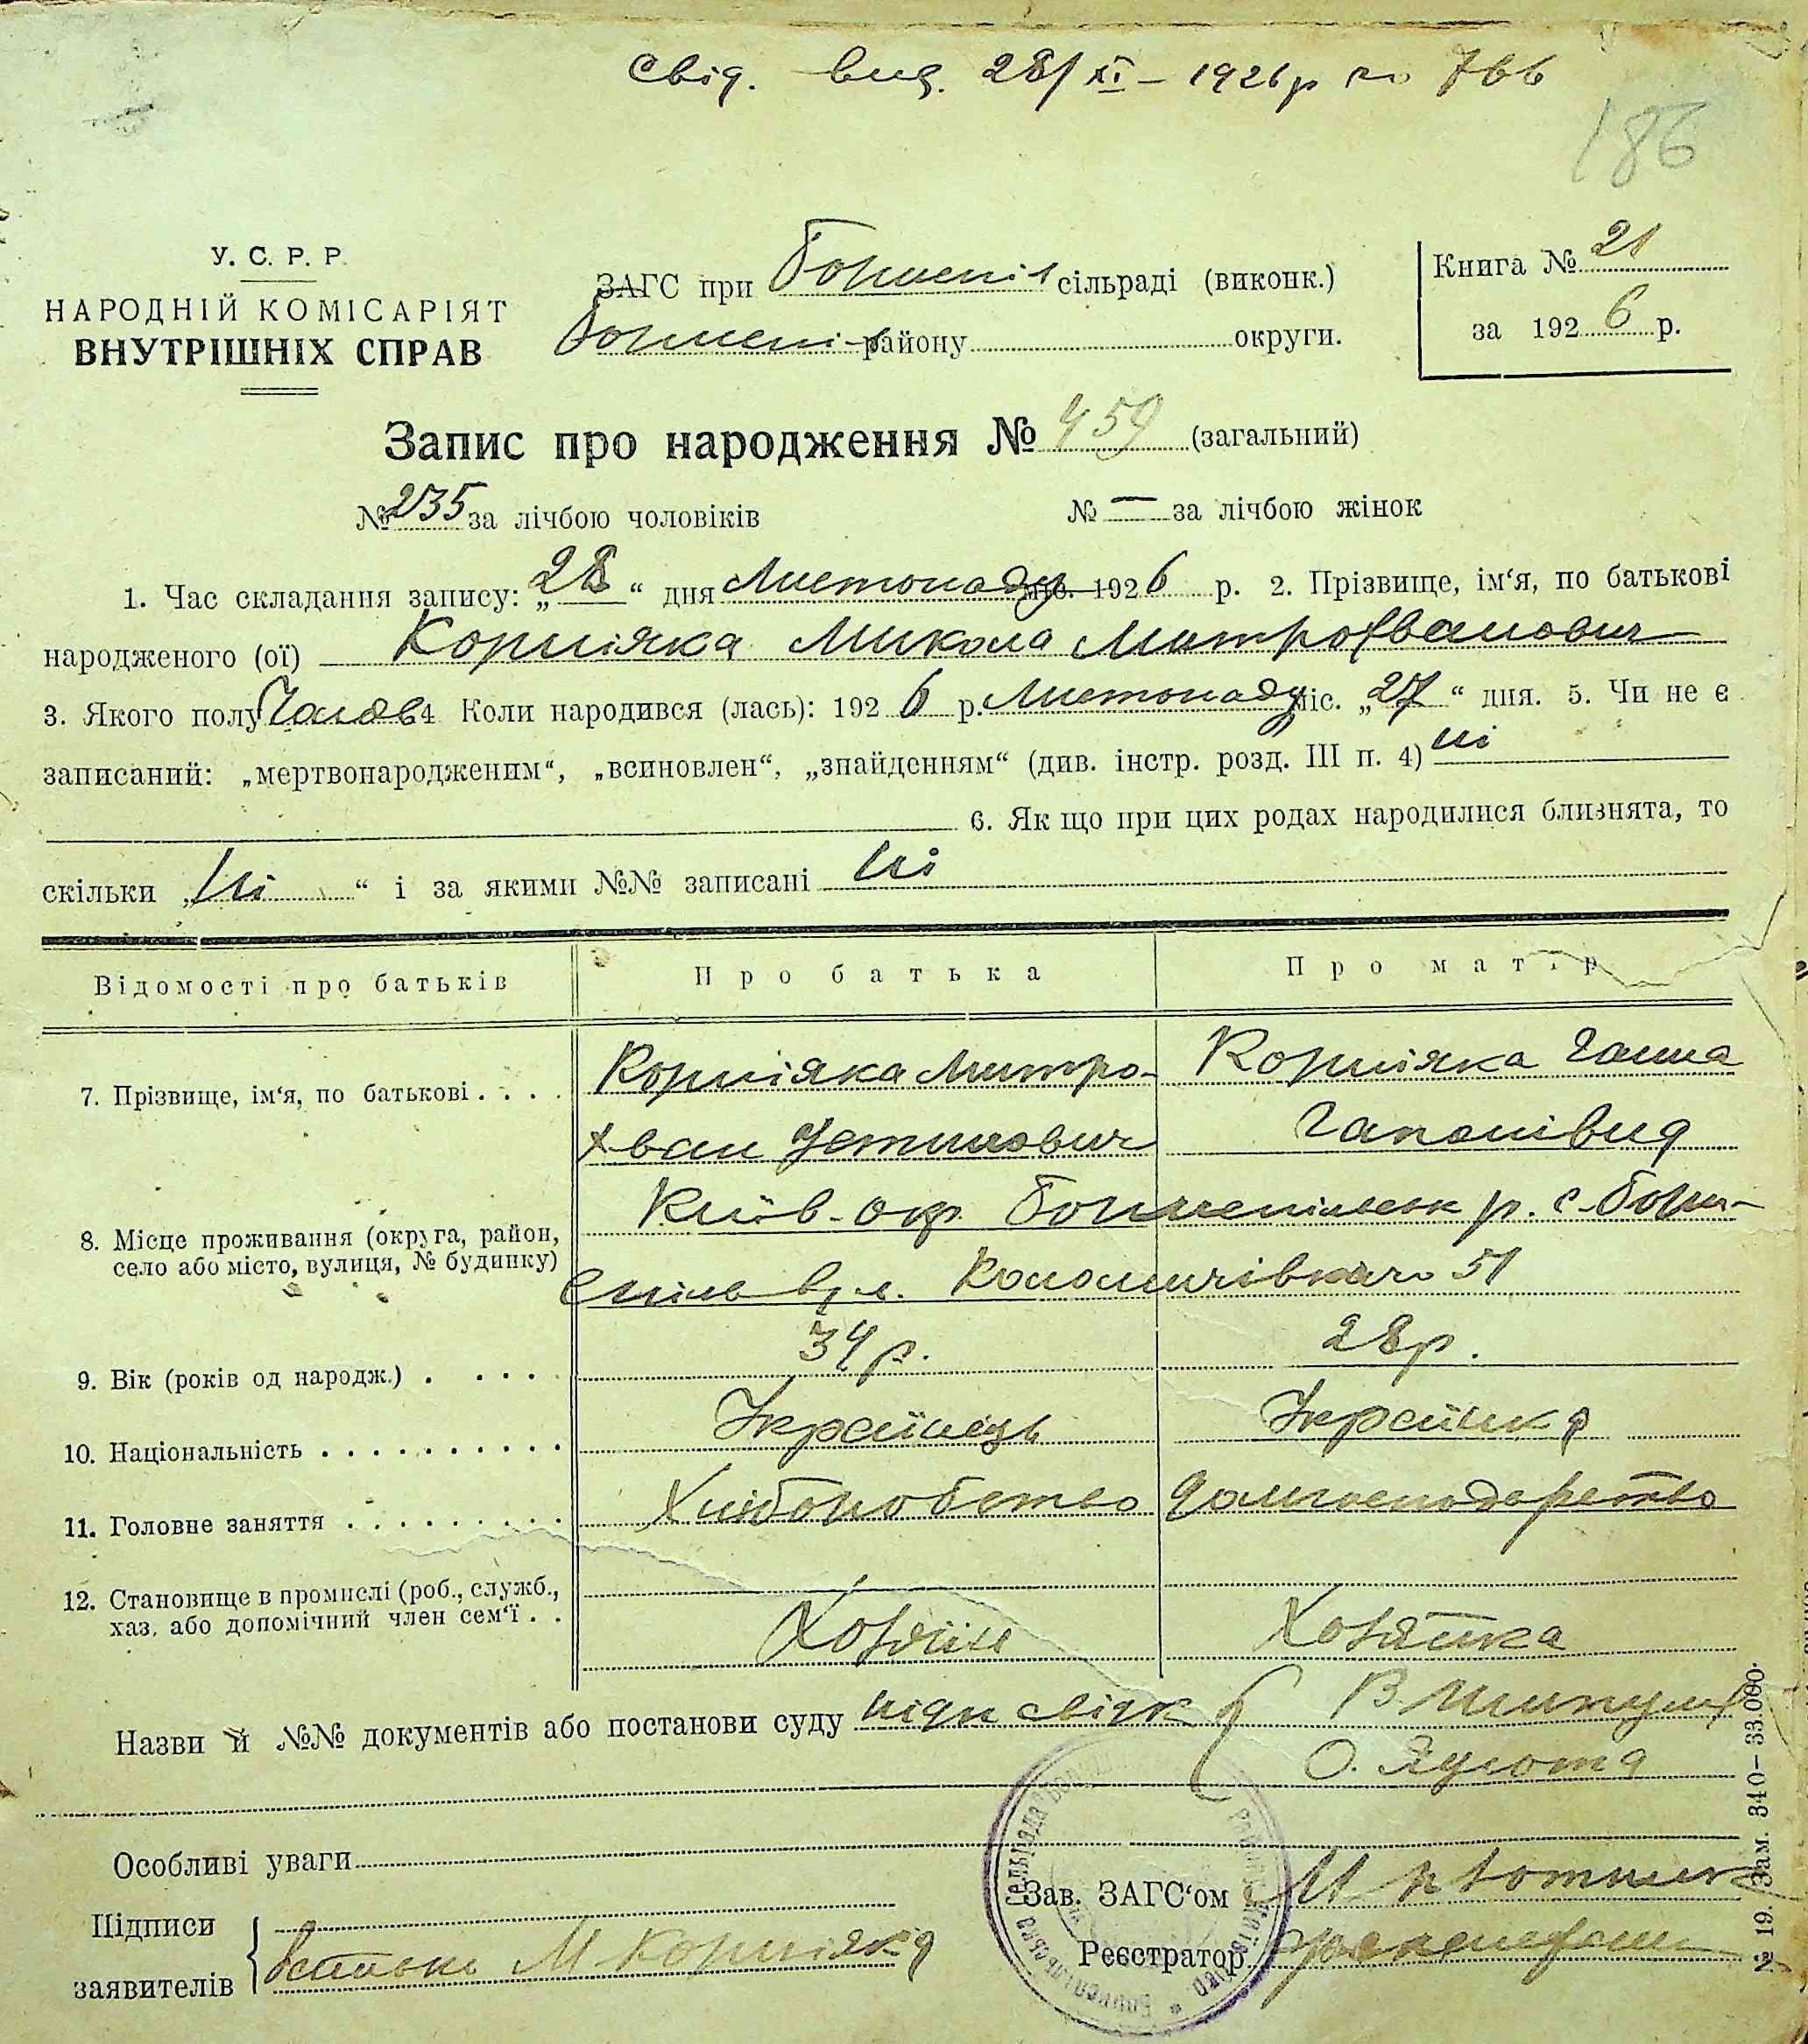 Свід. вид. 28/XI – 1926 р № 766
186
У. С. Р. Р.
НАРОДНІЙ КОМІСАРІЯТ
ВНУТРІШНІХ СПРАВ
ЗАГС при Боришпіл сільраді (виконк.)
району округи.
Книга № 21
за 1926 р.
Запис про народження № 459 (загальний)
№ 235 за лічбою чоловіків № — за лічбою жінок
1. Час складання запису: „28“ дня Листопаду міс. 1926 р. 2. Прізвище, ім‘я, по батькові
народженого (ої) Корніяка Микола Митрохванович
3. Якого полу Чолов 4 Коли народився (лась): 1926 р. Листопаду міс. „27“ дня. 5. Чи не є
записаний: „мертвонародженим“, „всиновлен“, „знайденням“ (див. інстр. розд. III п. 4) ні
6. Як що при цих родах народилися близнята, то
скільки „ні“ і за якими №№ записані ні
Відомості про батьків Про батька Про матір
7. Прізвище, ім‘я, по батькові . . . . Корніяка Митро- Корніяка Ганна
хван Устимович Гапонівид
8. Місце проживання (округа, район,
село або місто, вулиця, № будинку)
Київ. окр. р. с.
51
9. Вік (років од народж.) . . . . 34 р. 28 р.
10. Національність . . . . . . . . . . Українець Українка
11. Головне заняття . . . . . . . . . Хліборобство домгосподарство
12. Становище в промислі (роб., служб.,
хаз. або допомічний член сем‘ї . .
Хозяїн Хозяїка
Назви й №№ документів або постанови суду підп свідк В.
О.
Особливі уваги
Підписи
заявителів
М Корніяка
Зав. ЗАГС‘ом
Реєстратор
2 19. Зам. 340–33.000.